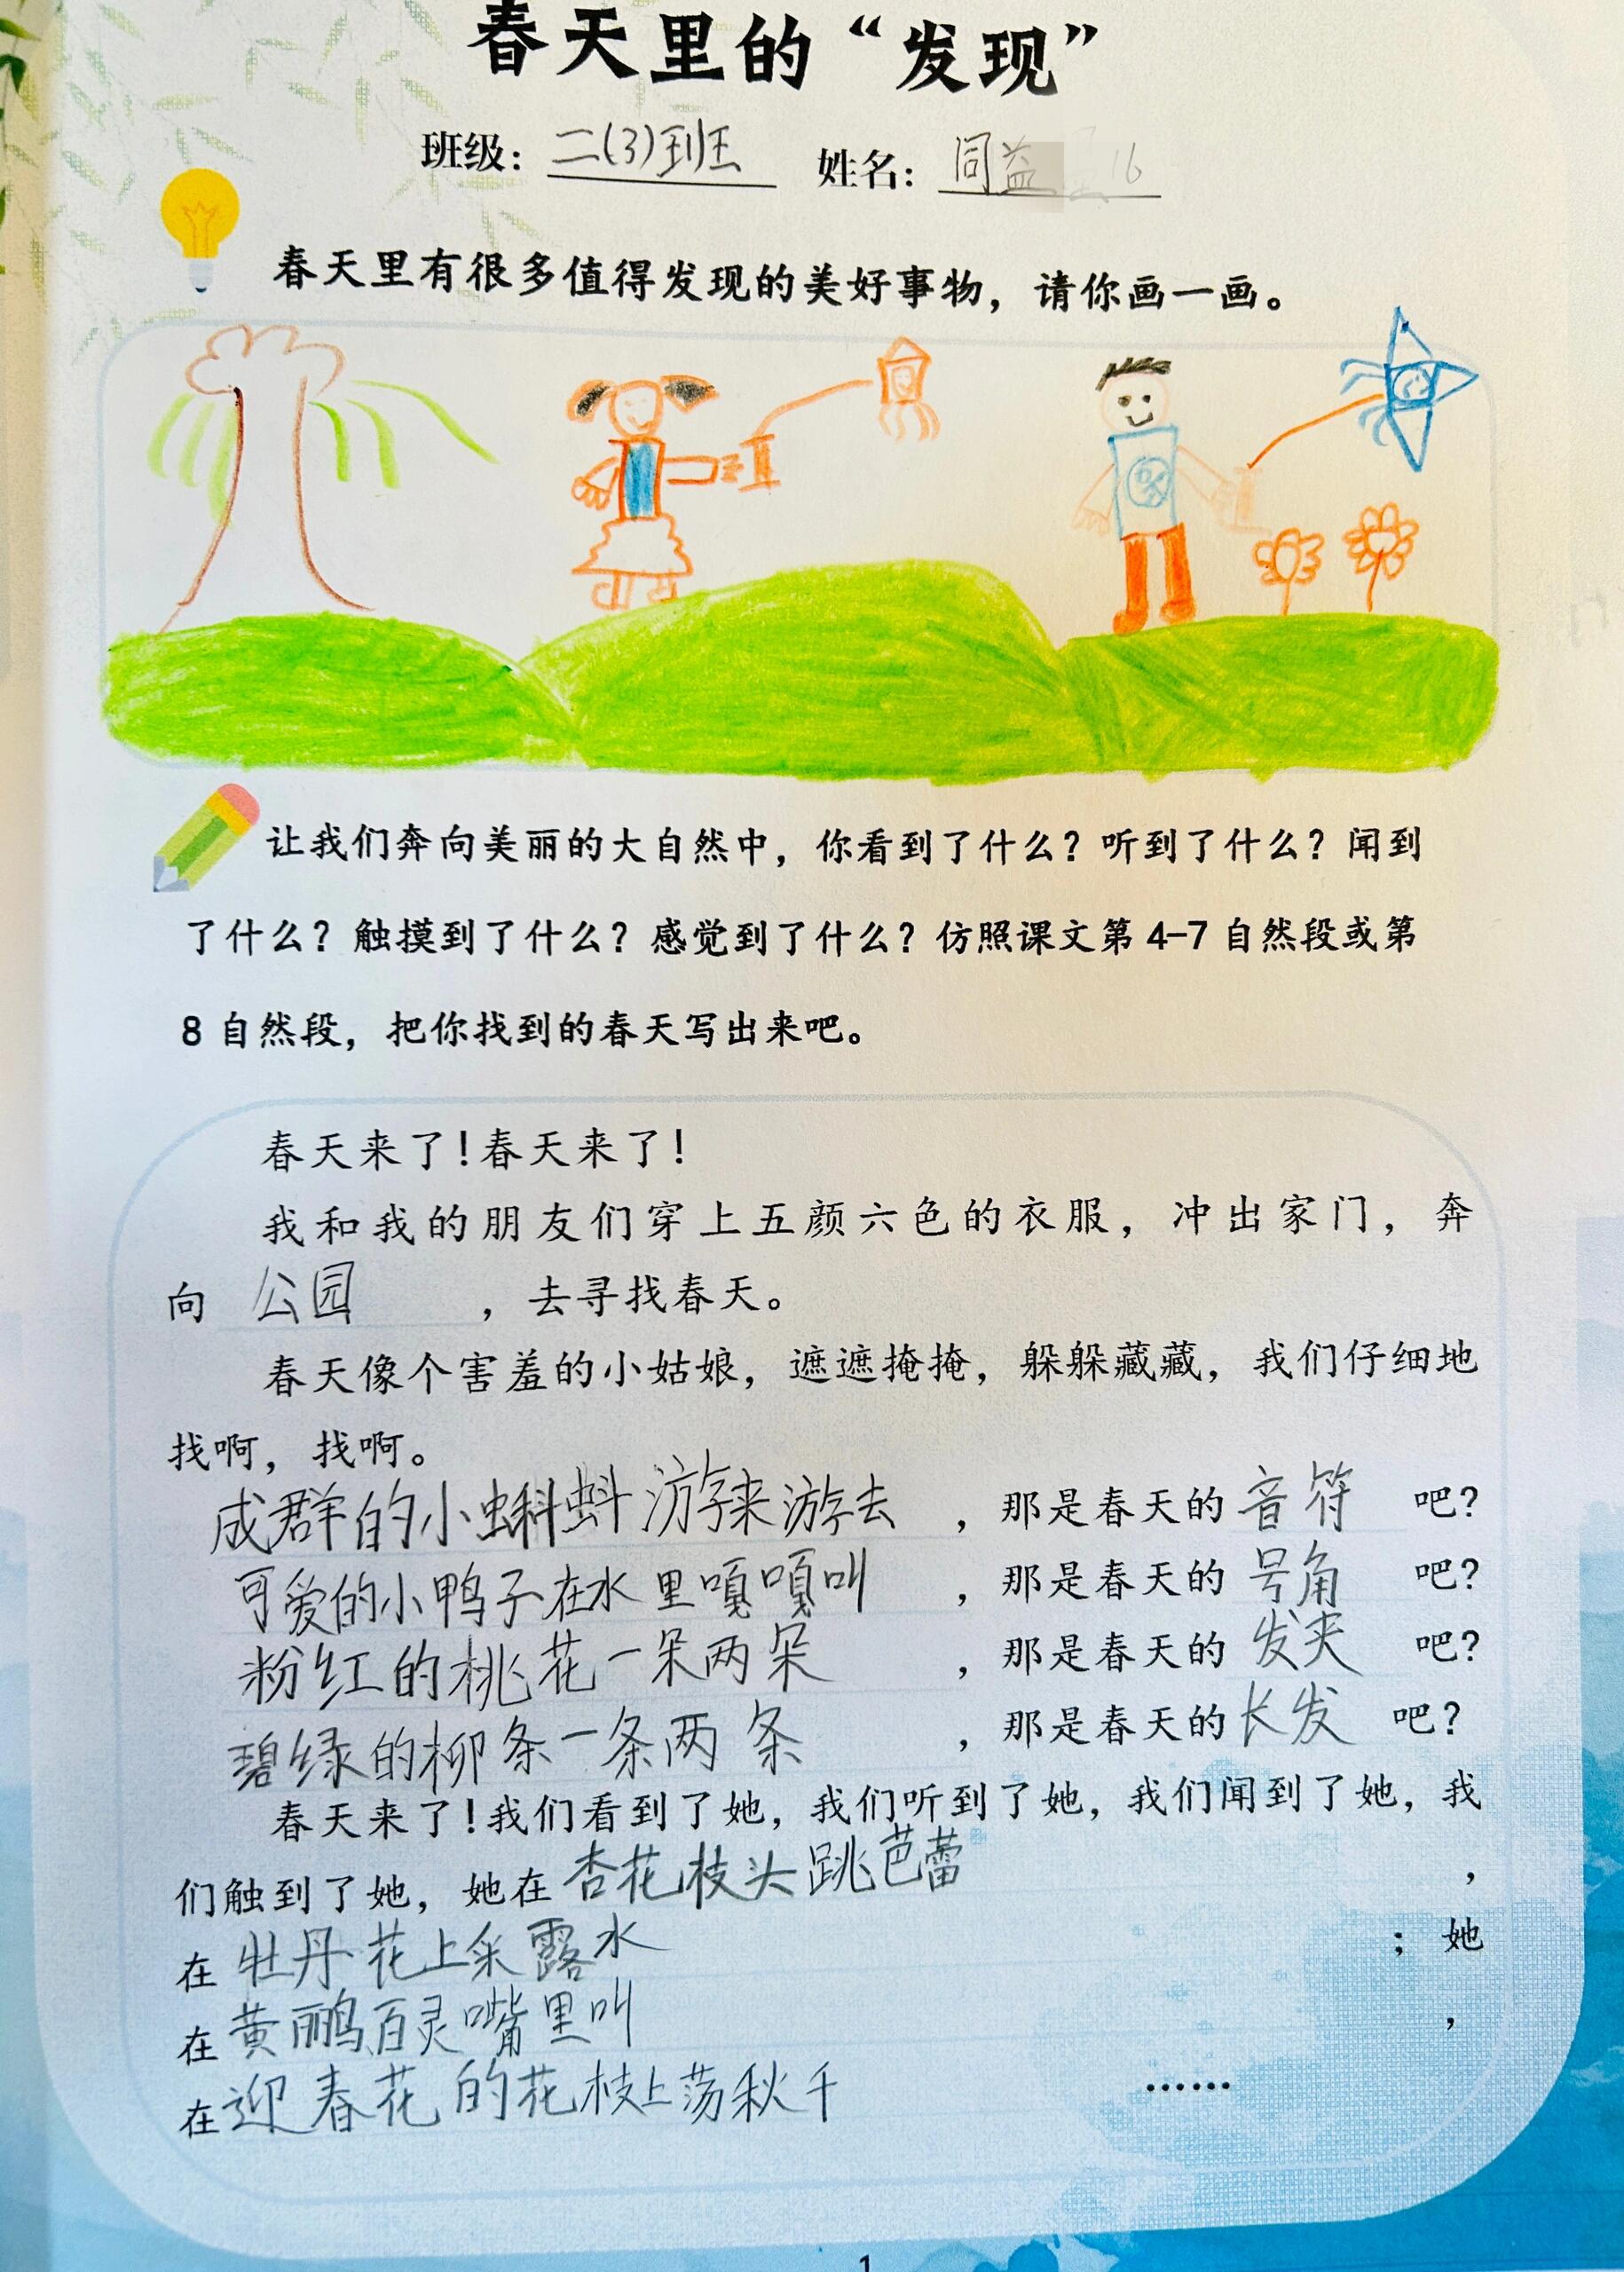 春天里的“发现”
班级：二(3)班 姓名：同益 16
春天里有很多值得发现的美好事物，请你画一画。
让我们奔向美丽的大自然中，你看到了什么？听到了什么？闻到
了什么？触摸到了什么？感觉到了什么？仿照课文第 4-7 自然段或第
8 自然段，把你找到的春天写出来吧。
春天来了！春天来了！
我和我的朋友们穿上五颜六色的衣服，冲出家门，奔
向 公园 ，去寻找春天。
春天像个害羞的小姑娘，遮遮掩掩，躲躲藏藏，我们仔细地
找啊，找啊。
成群的小蝌蚪游来游去 ，那是春天的 音符 吧？
可爱的小鸭子在水里嘎嘎叫 ，那是春天的 号角 吧？
粉红的桃花一朵两朵 ，那是春天的 发夹 吧？
碧绿的柳条一条两条 ，那是春天的 长发 吧？
春天来了！我们看到了她，我们听到了她，我们闻到了她，我
们触到了她，她在 杏花枝头跳芭蕾 ，
在 牡丹花上采露水 ；她
在 黄鹂百灵嘴里叫 ，
在 迎春花的花枝上荡秋千 ……
1